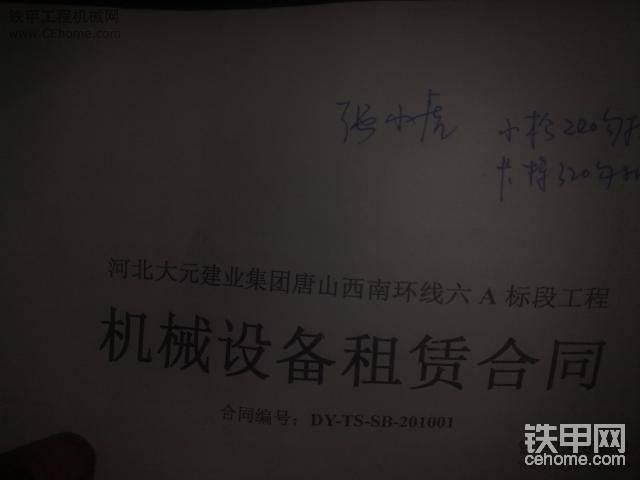 铁甲工程机械网
www.CEhome.com
张小虎 小松220勾机
卡特320勾机
河北大元建业集团唐山西南环线六 A 标段工程
机械设备租赁合同
合同编号：DY-TS-SB-201001
铁甲网
cehome.com